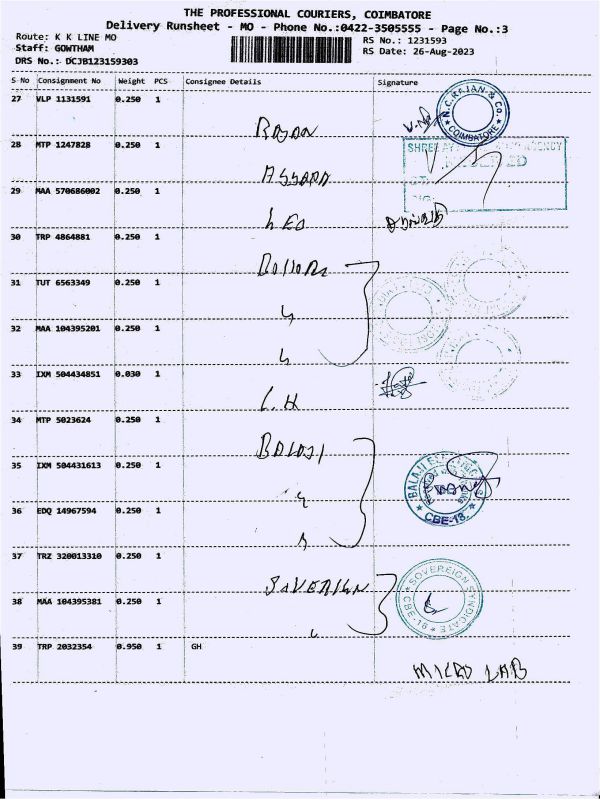 THE PROFESSIONAL COURIERS, COIMBATORE
Delivery Runsheet - MO - Phone No.:0422-3505555 - Page No.:3
Route: K K LINE MO
RS No.: 1231593
Staff: GOWTHAM
RS Date: 26-Aug-2023
DRS No.: DCJB123159303
S No Consignment No Weight PCS Consignee Details Signature
27 VLP 1131591 0.250 1
N.C.RAJAN & Co. COIMBATORE
RAJAN
28 MTP 1247828 0.250 1
29 MAA 570686002 0.250 1
LEO
30 TRP 4864881 0.250 1
31 TUT 6563349 0.250 1
32 MAA 104395201 0.250 1
33 IXM 504434851 0.030 1
L.H
34 MTP 5023624 0.250 1
BALAJI
35 IXM 504431613 0.250 1
CBE-18.
36 EDQ 14967594 0.250 1
37 TRZ 320013310 0.250 1
SOVEREIGN SYNDICATE CBE-18
SOVERIGN
38 MAA 104395381 0.250 1
39 TRP 2032354 0.950 1 GH
MICRO LAB